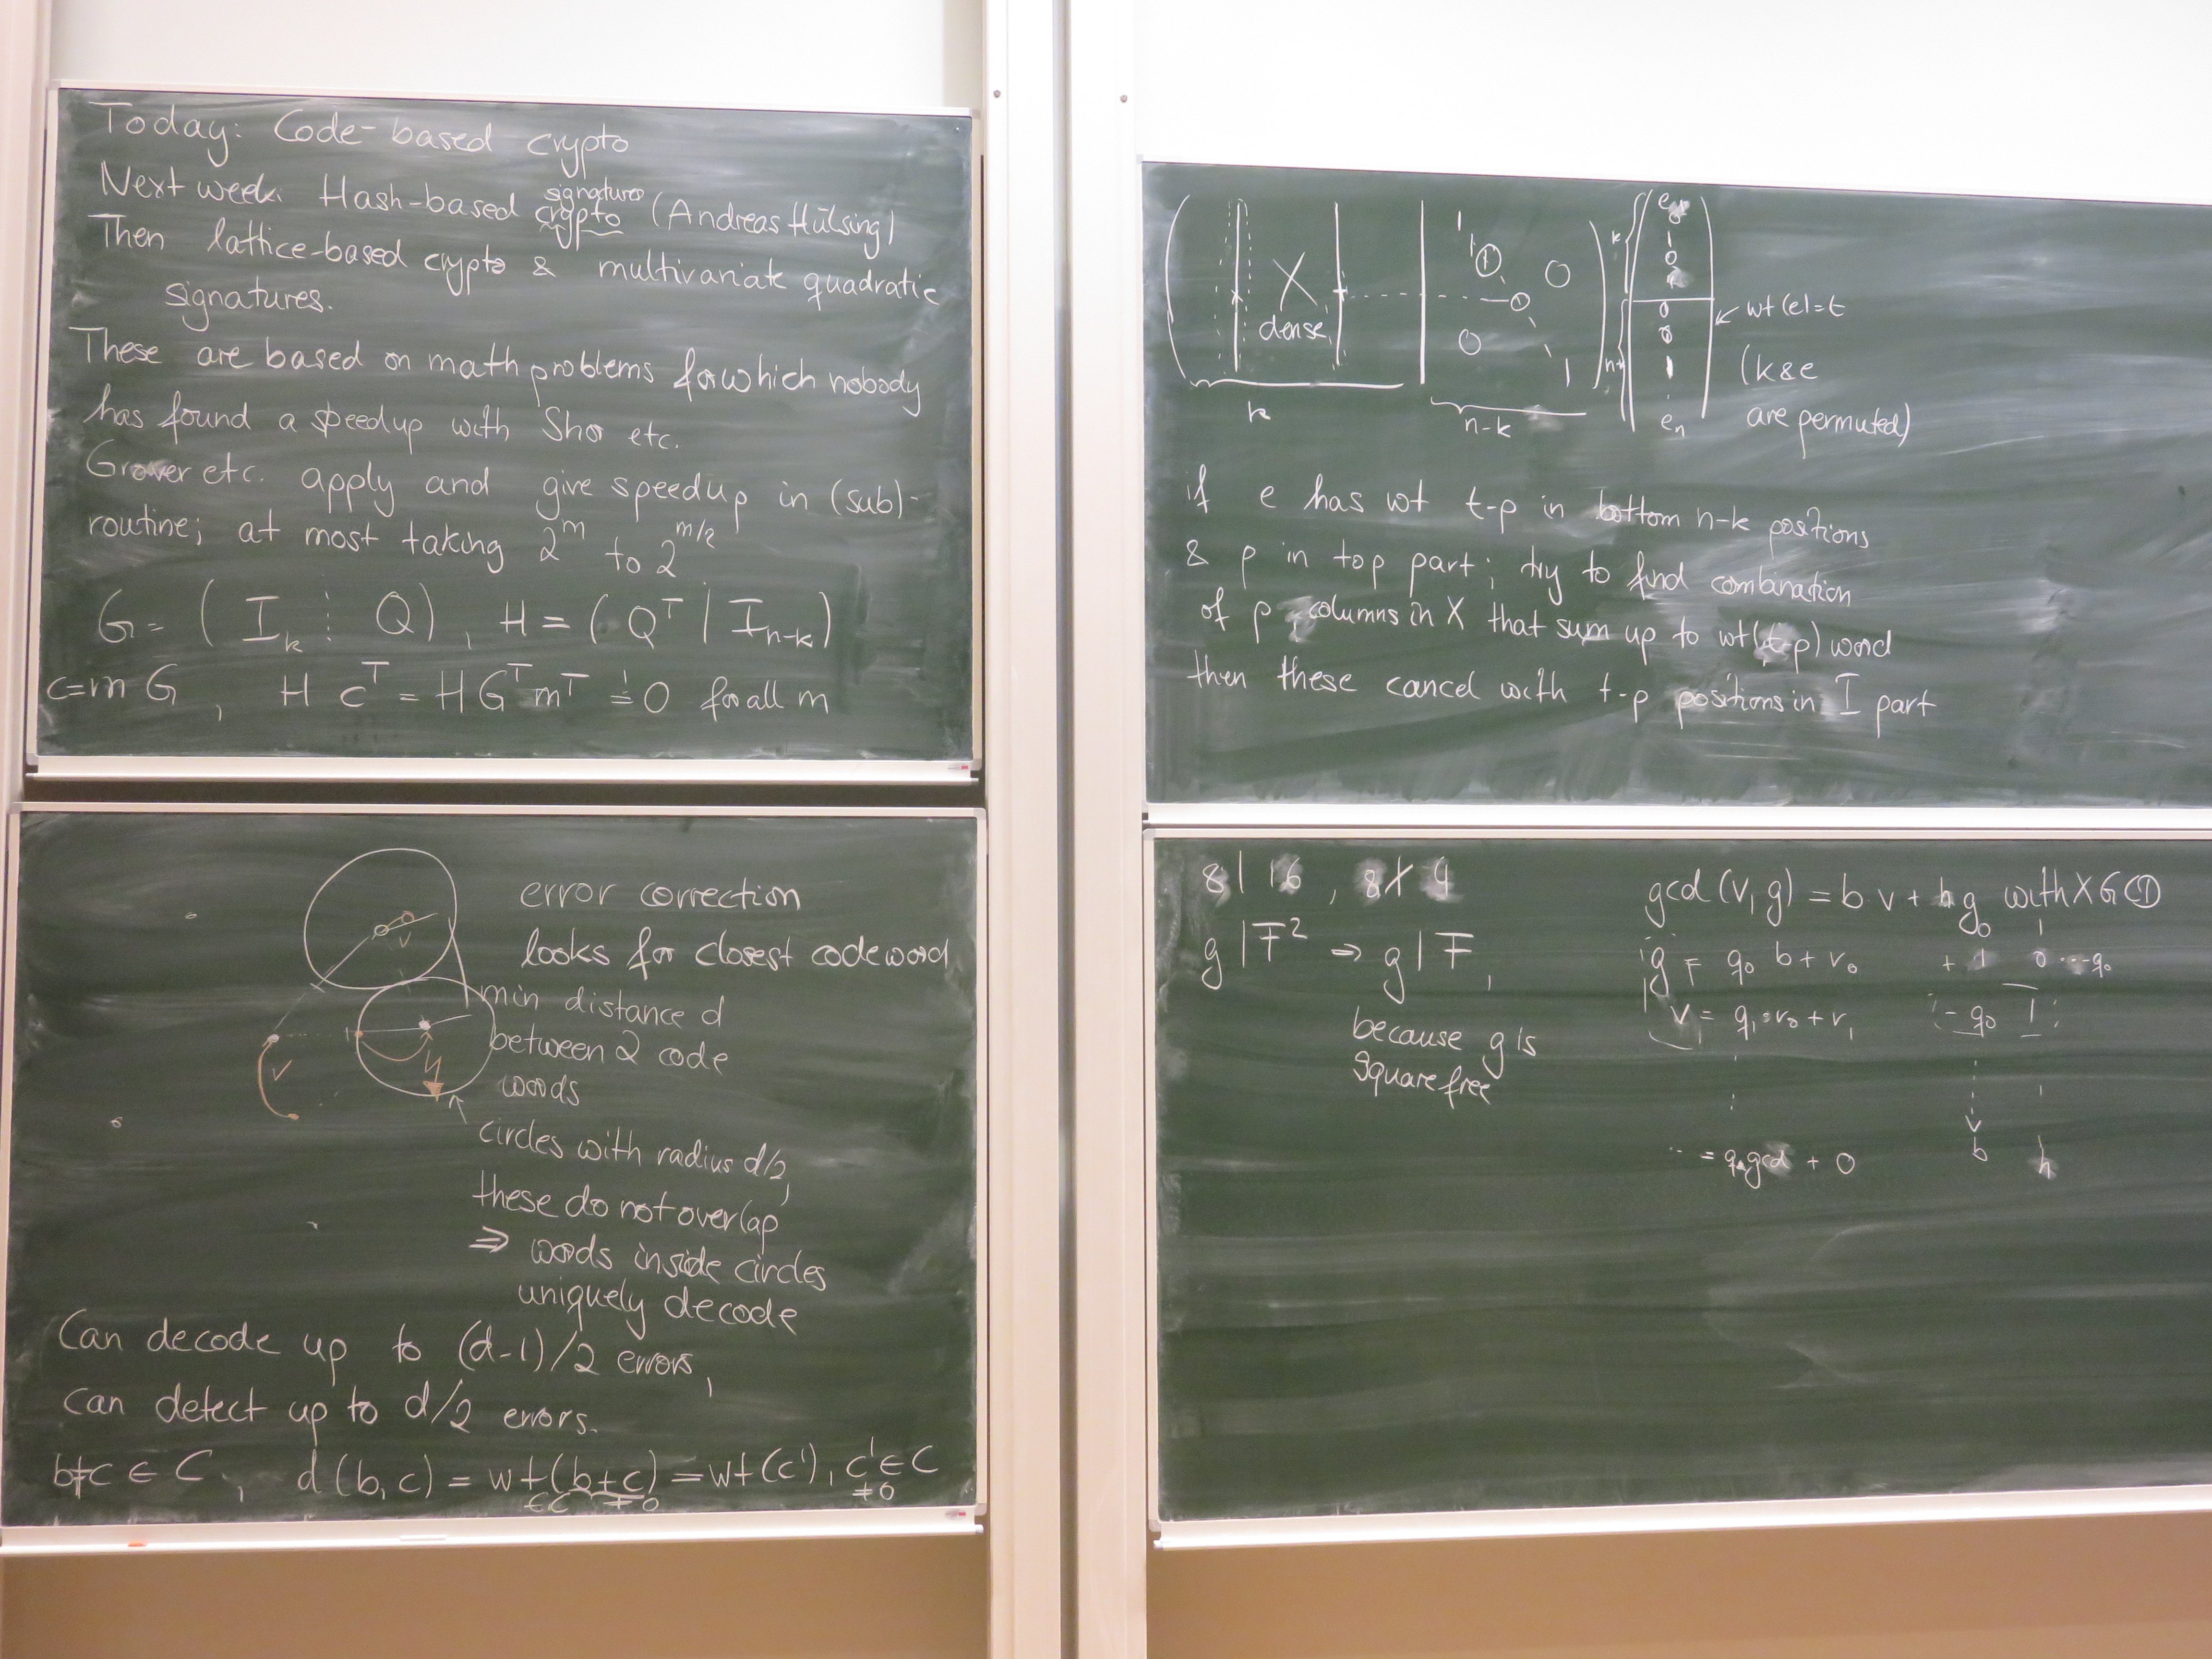 Today: Code-based crypto
Next week: Hash-based crypto signatures (Andreas Hülsing)
Then lattice-based crypto & multivariate quadratic
signatures.
These are based on math problems for which nobody
has found a speedup with Shor etc.
Grover etc. apply and give speedup in (sub)-
routine; at most taking 2^m to 2^{m/2}
G = (I_k ⋮ Q), H = (Q^T | I_{n-k})
c=mG, H c^T = H G^T m^T != 0 for all m
error correction
looks for closest codeword
min distance d
between 2 code
words
v
v
circles with radius d/2,
these do not overlap
⇒ words inside circles
uniquely decode
Can decode up to (d-1)/2 errors,
can detect up to d/2 errors.
b≠c ∈ C, d(b,c) = wt(b+c) = wt(c'), c' ∈ C
∈C ≠0 ≠0
X
dense
1
1
1
0
0
1
1
k
n-k
k
1
0
0
0
1
e_n
wt(e)=t
(k & e
are permuted)
if e has wt t-p in bottom n-k positions
& p in top part; try to find combination
of p columns in X that sum up to wt(t-p) word
then these cancel with t-p positions in I part
8 | 16, 8 ∤ 4
g | F² ⇒ g | F,
because g is
squarefree
gcd(v,g) = b v + h g with XGCD
0 1
g = q_0 b + r_0 + 1 0 -q_0
v = q_1·r_0 + r_1 -q_0 1
⋮
b h
.. = q·gcd + 0